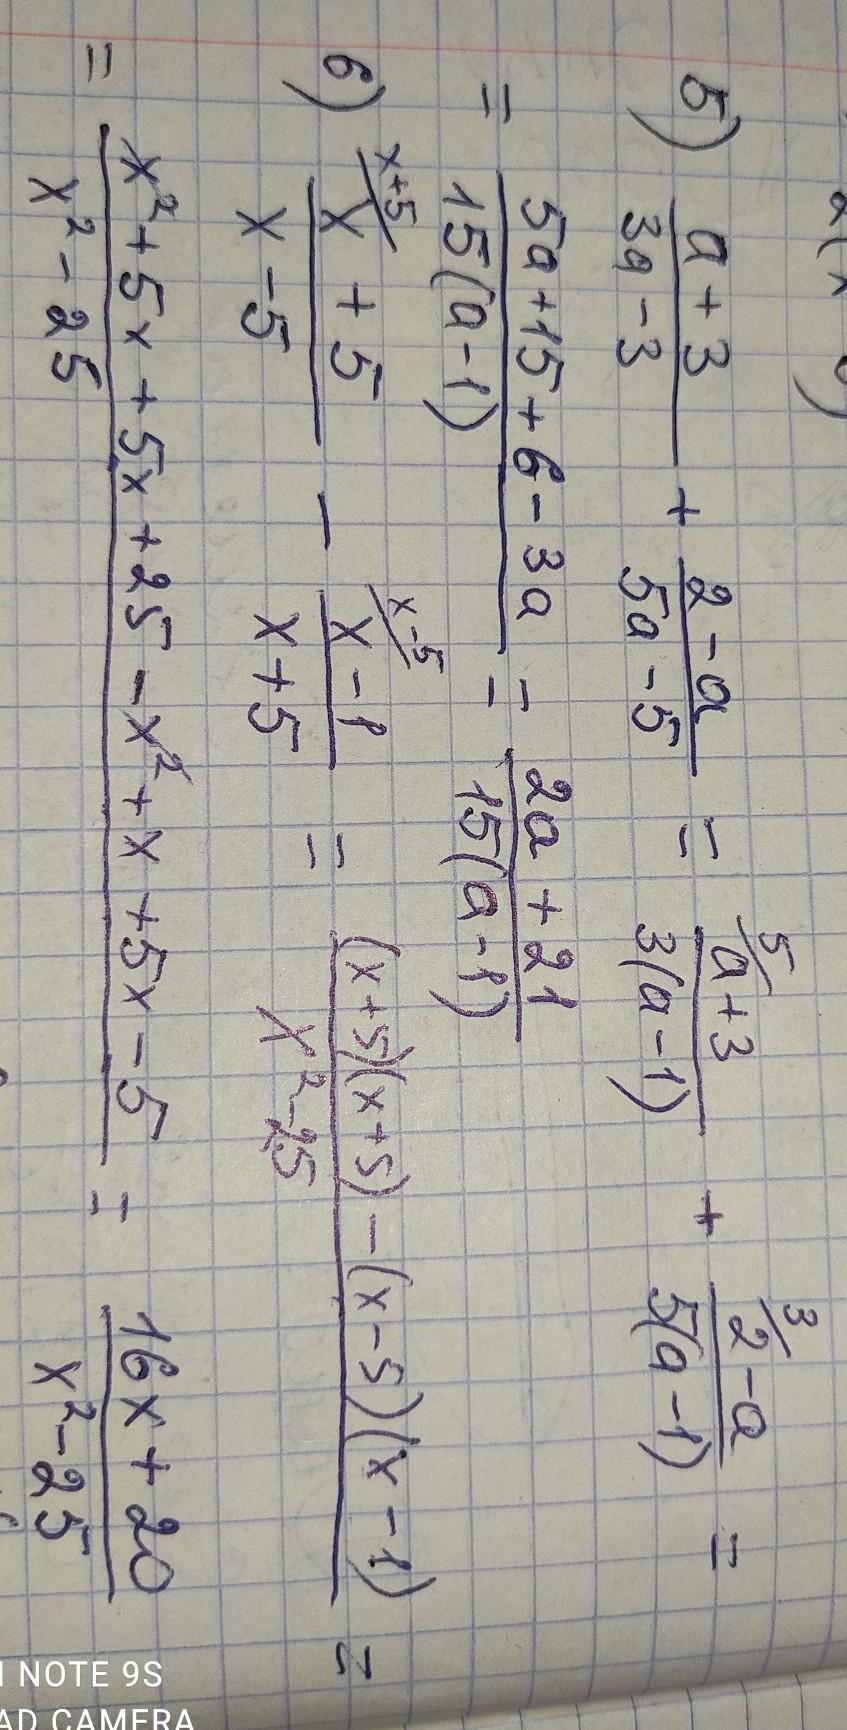 5) \frac{a+3}{3a-3} + \frac{2-a}{5a-5} = \frac{^{5/}a+3}{3(a-1)} + \frac{^{3/}2-a}{5(a-1)} =
= \frac{5a+15+6-3a}{15(a-1)} = \frac{2a+21}{15(a-1)}
6) \frac{^{x+5/}x+5}{x-5} - \frac{^{x-5/}x-1}{x+5} = \frac{(x+5)(x+5)-(x-5)(x-1)}{x^2-25} =
= \frac{x^2+5x+5x+25-x^2+x+5x-5}{x^2-25} = \frac{16x+20}{x^2-25}
NOTE 9S
AD CAMERA